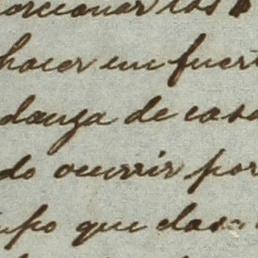 orcionar las
hacer un fuert
danza de casa
do ocurrir por
mpo que das